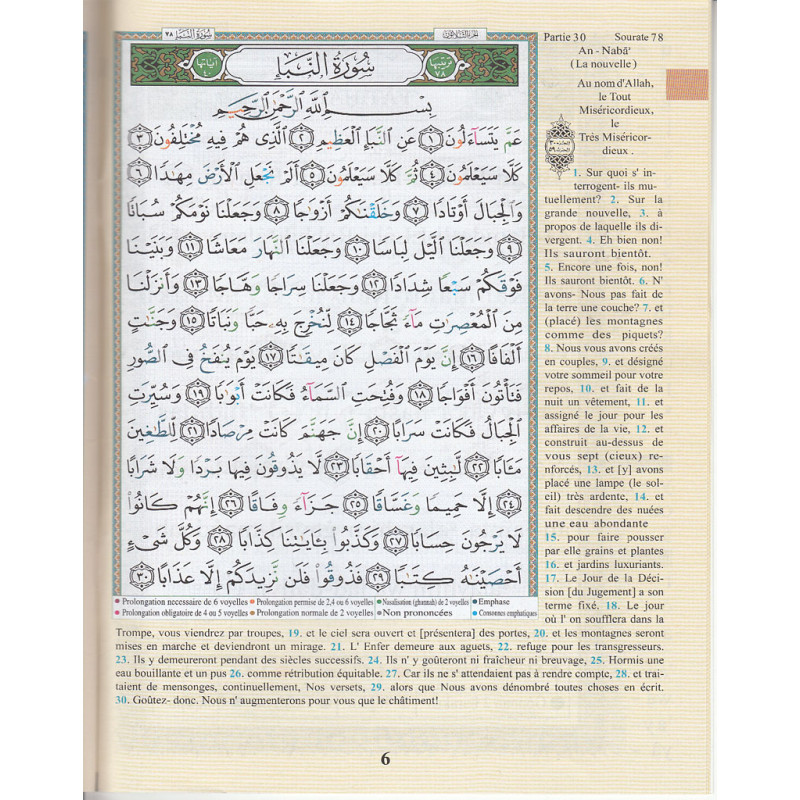 سورة النبإ ٧٨
الجزء الثلاثون
Partie 30 Sourate 78
An - Nabā'
(La nouvelle)
آياتها ٤٠
سورة النبإ
ترتيبها ٧٨
بسم الله الرحمن الرحيم
عم يتساءلون ١ عن النبإ العظيم ٢ الذي هم فيه مختلفون ٣
كلا سيعلمون ٤ ثم كلا سيعلمون ٥ ألم نجعل الأرض مهدا ٦
والجبال أوتادا ٧ وخلقنكم أزوجا ٨ وجعلنا نومكم سباتا
٩ وجعلنا اليل لباسا ١٠ وجعلنا النهار معاشا ١١ وبنينا
فوقكم سبعا شدادا ١٢ وجعلنا سراجا وهاجا ١٣ وأنزلنا
من المعصرت ماء ثجاجا ١٤ لنخرج به حبا ونباتا ١٥ وجنت
ألفافا ١٦ إن يوم الفصل كان ميقتا ١٧ يوم ينفخ في الصور
فتأتون أفواجا ١٨ وفتحت السماء فكانت أبوبا ١٩ وسيرت
الجبال فكانت سرابا ٢٠ إن جهنم كانت مرصادا ٢١ للطغين
مئابا ٢٢ لبثين فيها أحقابا ٢٣ لا يذوقون فيها بردا ولا شرابا
٢٤ إلا حميما وغساقا ٢٥ جزاء وفاقا ٢٦ إنهم كانوا
لا يرجون حسابا ٢٧ وكذبوا بئايتنا كذابا ٢٨ وكل شيء
أحصينه كتبا ٢٩ فذوقوا فلن نزيدكم إلا عذابا ٣٠
Prolongation necessaire de 6 voyelles Prolongation permise de 2,4 ou 6 voyelles Nasalisation (ghunnah) de 2 voyelles Emphase
Prolongation obligatoire de 4 ou 5 voyelles Prolongation normale de 2 voyelles Non prononcées Consonnes emphatiques
Au nom d'Allah,
le Tout
Miséricordieux,
le
Trés Miséricor-
dieux .
1. Sur quoi s' in-
terrogent- ils mu-
tuellement? 2. Sur la
grande nouvelle, 3. à
propos de laquelle ils di-
vergent. 4. Eh bien non!
Ils sauront bientôt.
5. Encore une fois, non!
Ils sauront bientôt. 6. N'
avons- Nous pas fait de
la terre une couche? 7. et
(placé) les montagnes
comme des piquets?
8. Nous vous avons créés
en couples, 9. et désigné
votre sommeil pour votre
repos, 10. et fait de la
nuit un vêtement, 11. et
assigné le jour pour les
affaires de la vie, 12. et
construit au-dessus de
vous sept (cieux) re-
nforcés, 13. et [y] avons
placé une lampe (le sol-
eil) très ardente, 14. et
fait descendre des nuées
une eau abondante
15. pour faire pousser
par elle grains et plantes
16. et jardins luxuriants.
17. Le Jour de la Déci-
sion [du Jugement] a son
terme fixé. 18. Le jour
où l' on soufflera dans la
Trompe, vous viendrez par troupes, 19. et le ciel sera ouvert et [présentera] des portes, 20. et les montagnes seront
mises en marche et deviendront un mirage. 21. L' Enfer demeure aux aguets, 22. refuge pour les transgresseurs.
23. Ils y demeureront pendant des siècles successifs. 24. Ils n' y goûteront ni fraîcheur ni breuvage, 25. Hormis une
eau bouillante et un pus 26. comme rétribution équitable. 27. Car ils ne s' attendaient pas à rendre compte, 28. et trai-
taient de mensonges, continuellement, Nos versets, 29. alors que Nous avons dénombré toutes choses en écrit.
30. Goûtez- donc. Nous n' augmenterons pour vous que le châtiment!
6